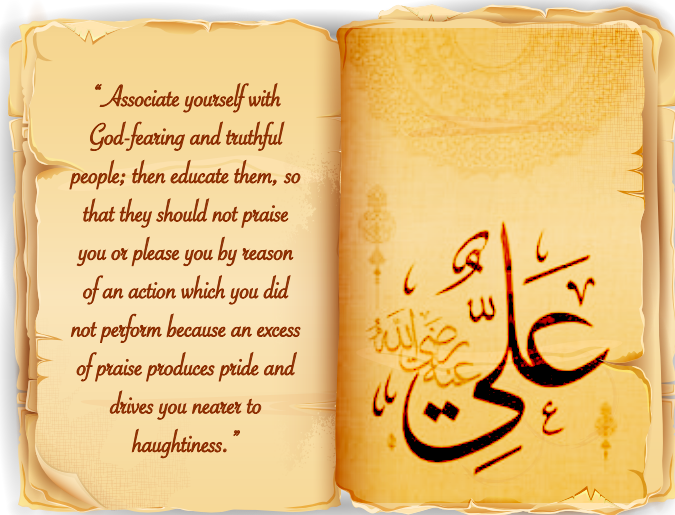 “ Associate yourself with
God-fearing and truthful
people; then educate them, so
that they should not praise
you or please you by reason
of an action which you did
not perform because an excess
of praise produces pride and
drives you nearer to
haughtiness.”
عَلِيّ
رضي الله
عنه